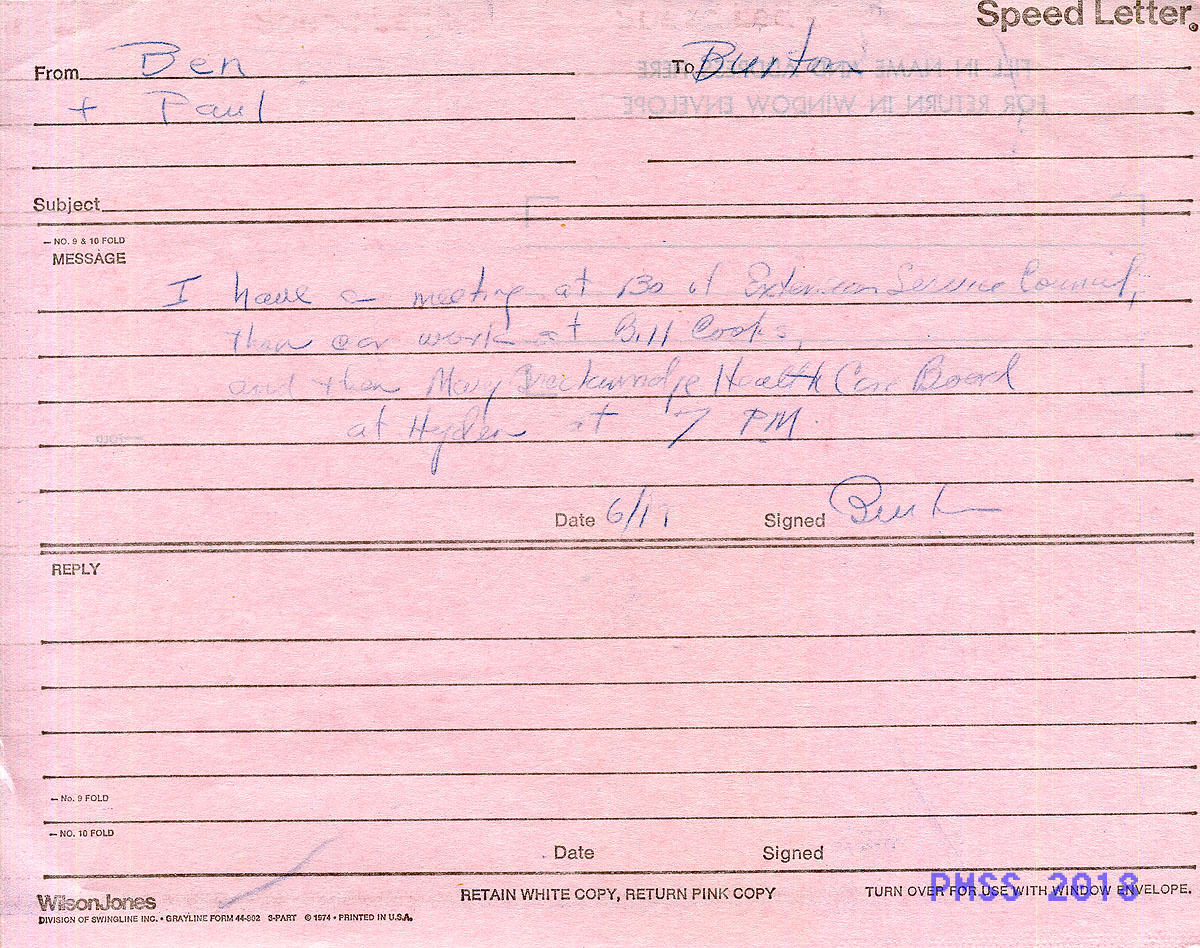 Speed Letter®
From Ben To Burton
+ Paul
Subject
– NO. 9 & 10 FOLD
MESSAGE
I have a meeting at 130 of Extension Service Council,
then car work at Bill Cooks,
and then Mary Breckinridge Health Care Board
at Hyden at 7 PM.
Date 6/19 Signed Burton
REPLY
– No. 9 FOLD
– NO. 10 FOLD
Date Signed
WilsonJones RETAIN WHITE COPY, RETURN PINK COPY TURN OVER FOR USE WITH WINDOW ENVELOPE.
PMSS 2018
DIVISION OF SWINGLINE INC. • GRAYLINE FORM 44-902 3-PART © 1974 • PRINTED IN U.S.A.